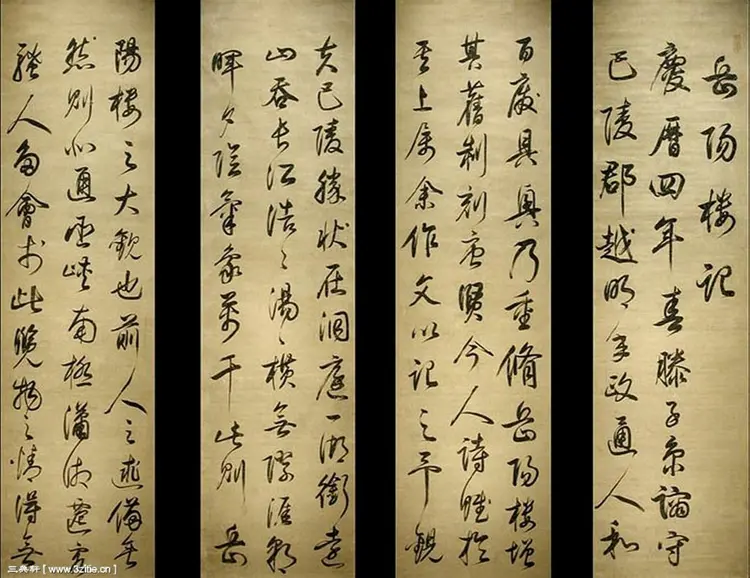 岳阳楼记
慶曆四年春滕子京謫守
巴陵郡越明年政通人和
百廢具興乃重脩岳阳楼增
其舊制刻唐賢今人詩賦於
其上属余作文以记之予觀
夫巴陵勝状在洞庭一湖銜遠
山吞長江浩〻湯〻橫無際涯朝
暉夕陰氣象萬千此則岳
陽楼之大觀也前人之述備矣
然則北通巫峽南極瀟湘遷客
騷人多會於此覽物之情得無
【www.3zitie.cn】